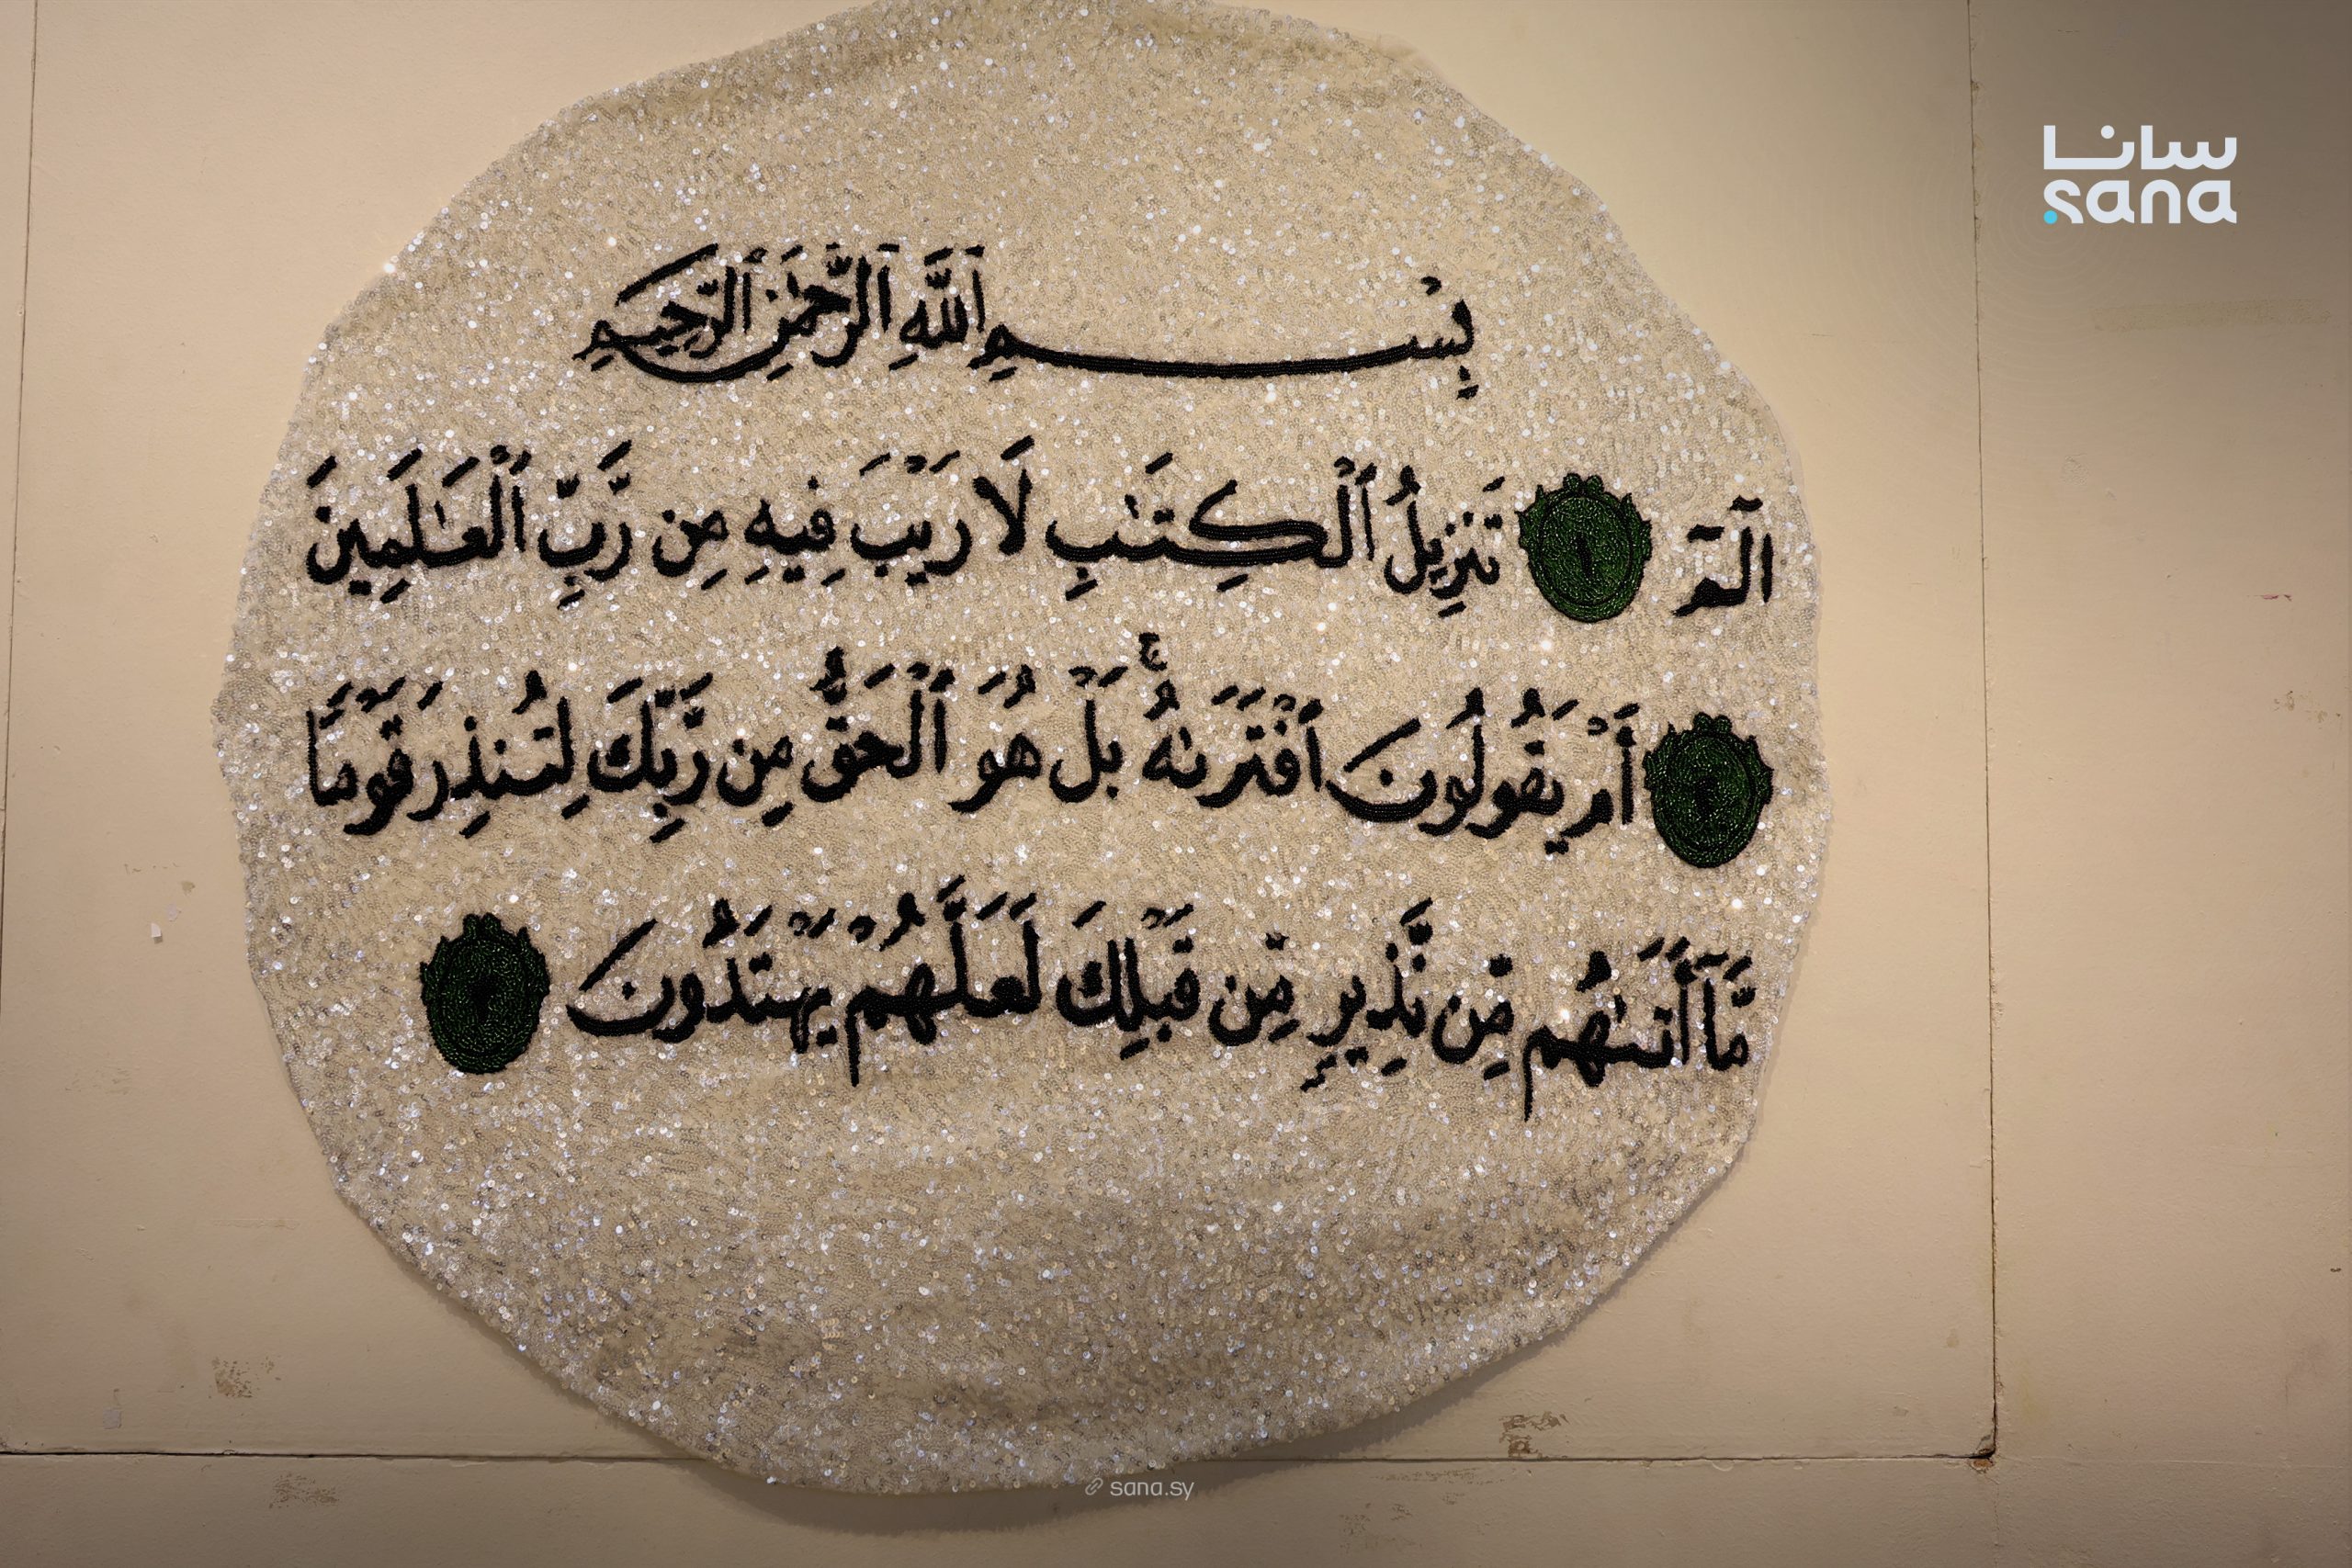 سانا
sana
بِسْمِ ٱللَّهِ ٱلرَّحْمَٰنِ ٱلرَّحِيمِ
الٓمٓ ١ تَنزِيلُ ٱلْكِتَٰبِ لَا رَيْبَ فِيهِ مِن رَّبِّ ٱلْعَٰلَمِينَ
أَمْ يَقُولُونَ ٱفْتَرَىٰهُۚ بَلْ هُوَ ٱلْحَقُّ مِن رَّبِّكَ لِتُنذِرَ قَوْمًا
مَّآ أَتَىٰهُم مِّن نَّذِيرٍ مِّن قَبْلِكَ لَعَلَّهُمْ يَهْتَدُونَ
sana.sy